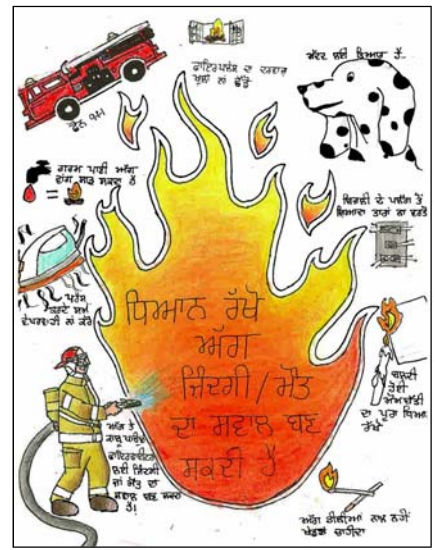 ਫਾਇਰਪਲੇਸ ਦਾ ਦਰਵਾਜ਼ਾ
ਖੁਲਾ ਨਾਂ ਛੱਡੋ
ਮੱਦਦ ਲਈ ਤਿਆਰ ਹੈ...
ਫੋਨ 911
ਗਰਮ ਪਾਣੀ ਅੱਗ
ਵਾਂਗ ਸਾੜ ਸਕਦਾ ਹੈ
=
ਬਿਜਲੀ ਦੇ ਪਲੱਗ ਤੋਂ
ਜ਼ਿਆਦਾ ਤਾਰਾਂ ਨਾ ਵਰਤੋ
ਪਰੈਸ
ਕਰਦੇ ਸਮੇਂ
ਲਾਪਰਵਾਹੀ ਨਾਂ ਕਰੋ
ਧਿਆਨ ਰੱਖੋ
ਅੱਗ
ਜ਼ਿੰਦਗੀ / ਮੌਤ
ਦਾ ਸਵਾਲ ਬਣ
ਸਕਦੀ ਹੈ
ਬਲਦੀ
ਹੋਈ
ਮੋਮਬੱਤੀ
ਦਾ ਪੂਰਾ ਧਿਆਨ
ਰੱਖੋ
ਅੱਗ ਤੇ
ਕਾਬੂ ਪਾਉਣਾ
ਫਾਇਰਫਾਈਟਰ
ਲਈ ਜ਼ਿੰਦਗੀ
ਜਾਂ ਮੌਤ ਦਾ
ਸਵਾਲ ਬਣ ਸਕਦਾ
ਹੈ!
ਅੱਗ ਤੀਲੀਆਂ ਨਾਲ ਨਹੀਂ
ਖੇਡਣਾ ਚਾਹੀਦਾ